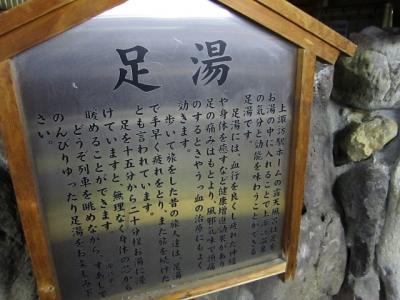 足湯
上諏訪駅ホームの露天風呂は足を
お湯の中に入れることで上諏訪温泉
の気分と効能を味わうことができる
足湯です。
足湯には、血行を良くし疲れた神経
や身体を癒すなど健康増進効果があり
足の痛みはもとより、風邪気味で頭痛
のするときやうっ血の治療にもよく
効きます。
歩いて旅をした昔の旅人達は、足湯
で手早く疲れをとり、また旅を続けた
とも言われています。
足を十五分から二十分程お湯に浸
けていますと、無理なく身体の芯から
暖めることができます。
どうぞ列車を眺めながら、
のんびりゆったり足湯をお楽しみ下
さい。